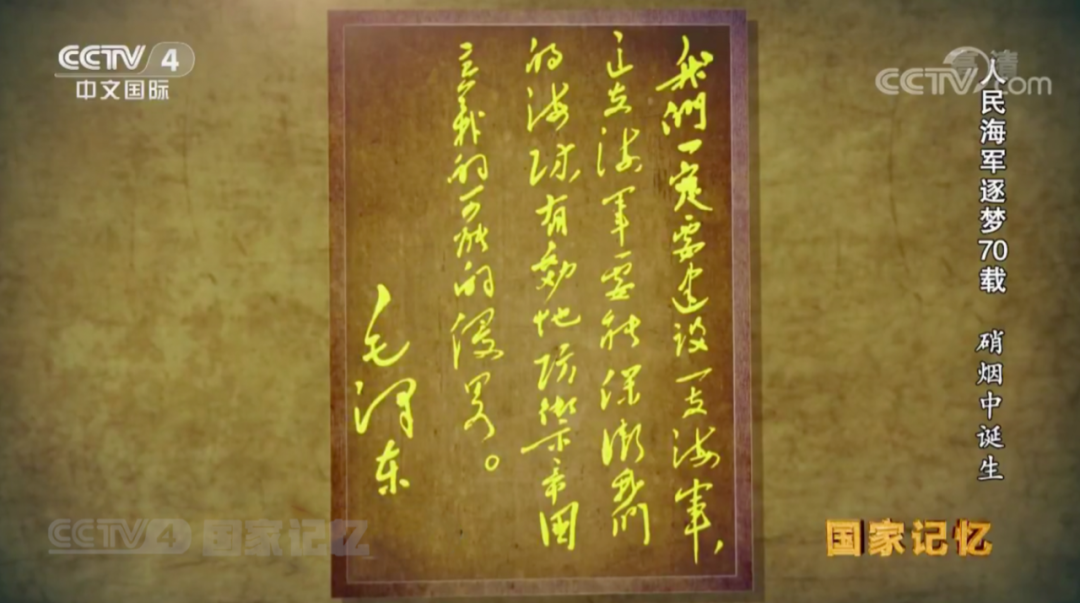 CCTV 4
中文国际
CCTV.com
高清
人民海军逐梦70载 硝烟中诞生
我們一定要建设一支海軍,
这支海軍要能保衛我們
的海防,有効地防禦帝国
主義的可能的侵畧。
毛泽东
CCTV 4 国家记忆
国家记忆